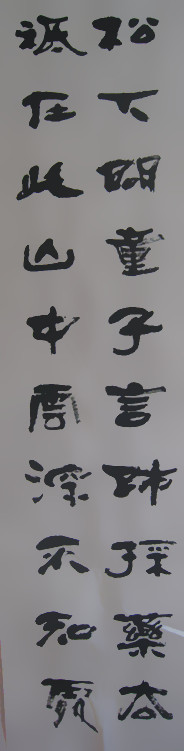 松下問童子言師採藥去
祗在此山中雲深不知處